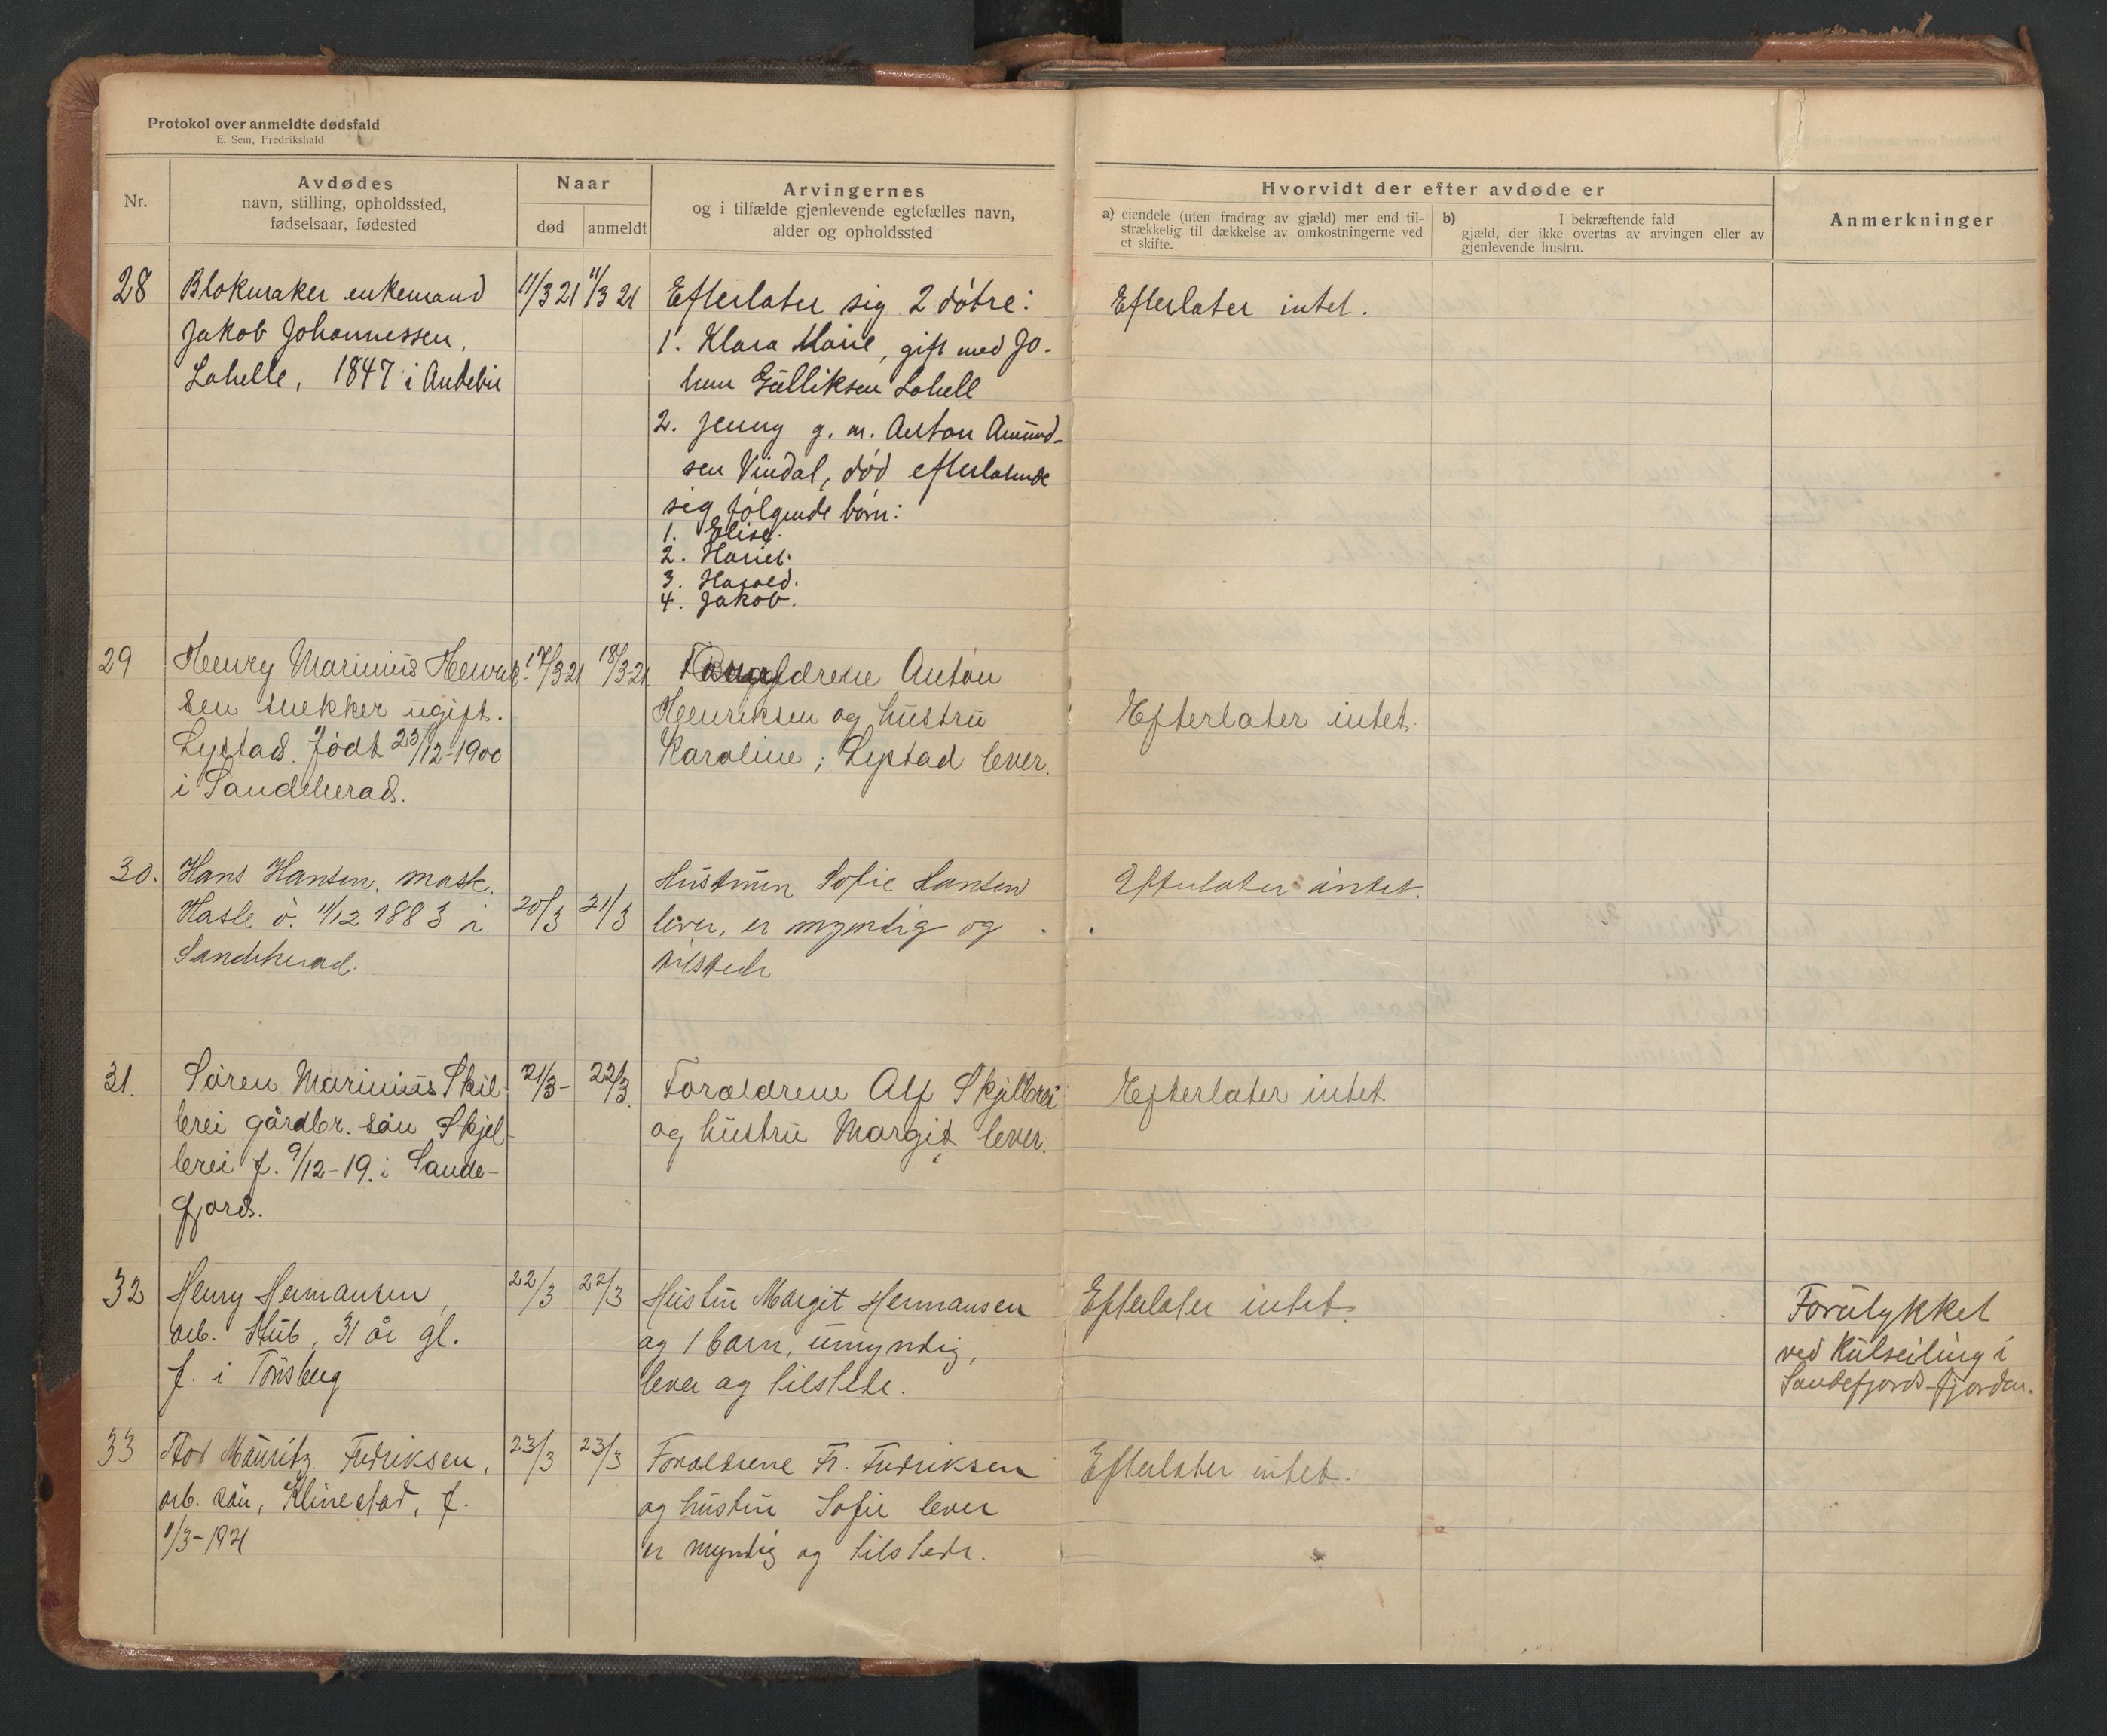 Protokol over anmeldte dødsfald
E. Sem, Fredrikshald
Nr.
Avdødes
navn, stilling, opholdssted,
fødselsaar, fødested
Naar
død
anmeldt
Arvingernes
og i tilfælde gjenlevende egtefælles navn,
alder og opholdssted
Hvorvidt der efter avdøde er
a) eiendele (uten fradrag av gjæld) mer end til-
strækkelig til dækkelse av omkostningerne ved
et skifte.
b) I bekræftende fald
gjæld, der ikke overtas av arvingen eller av
gjenlevende hustru.
Anmerkninger
28
Blokmaker enkemand
Jakob Johannessen,
Lahelle, 1847 i Andebu
11/3 21
11/3 21
Efterlater sig 2 døtre:
1. Klara Marie, gift med Jo-
han Gulliksen Lahell
2. Jenny g. m. Anton Amund-
sen Vindal, død efterlatende
sig følgende børn:
1. Elise.
2. Hariet.
3. Harald.
4. Jakob.
Efterlater intet.
29
Henry Marinius Henrik-
sen snekker ugift.
Lystad. født 23/12-1900
i Sandeherad.
17/3-21
18/3-21
Forældrene Anton
Henriksen og hustru
Karoline, Lystad lever.
Efterlater intet.
30.
Hans Hansen. mask.
Hasle ö. 11/12 1883 i
Sandeherad.
20/3
21/3
Hustruen Sofie Hansen
lever, er myndig og
tilstede
Efterlater intet.
31.
Søren Marinius Skil-
brei gårdbr. søn Skjel-
brei f. 9/12-19. i Sande-
fjord.
21/3-
22/3.
Forældrene Alf Skjelbrei
og hustru Margit lever.
Efterlater intet
32
Henry Hermansen,
arb. Stub, 31 år gl.
f. i Tönsberg
22/3
22/3
Hustru Margit Hermansen
og 1 barn, umyndig,
lever og tilstede.
Efterlater intet.
Forulykket
ved Kulseiling i
Sandefjords-fjorden.
33
Tor Mauritz Fredriksen,
arb. søn, Klinestad, f.
1/3-1921
23/3
23/3
Forældrene Fr. Fredriksen
og hustru Sofie lever
er myndig og tilstede.
Efterlater intet.